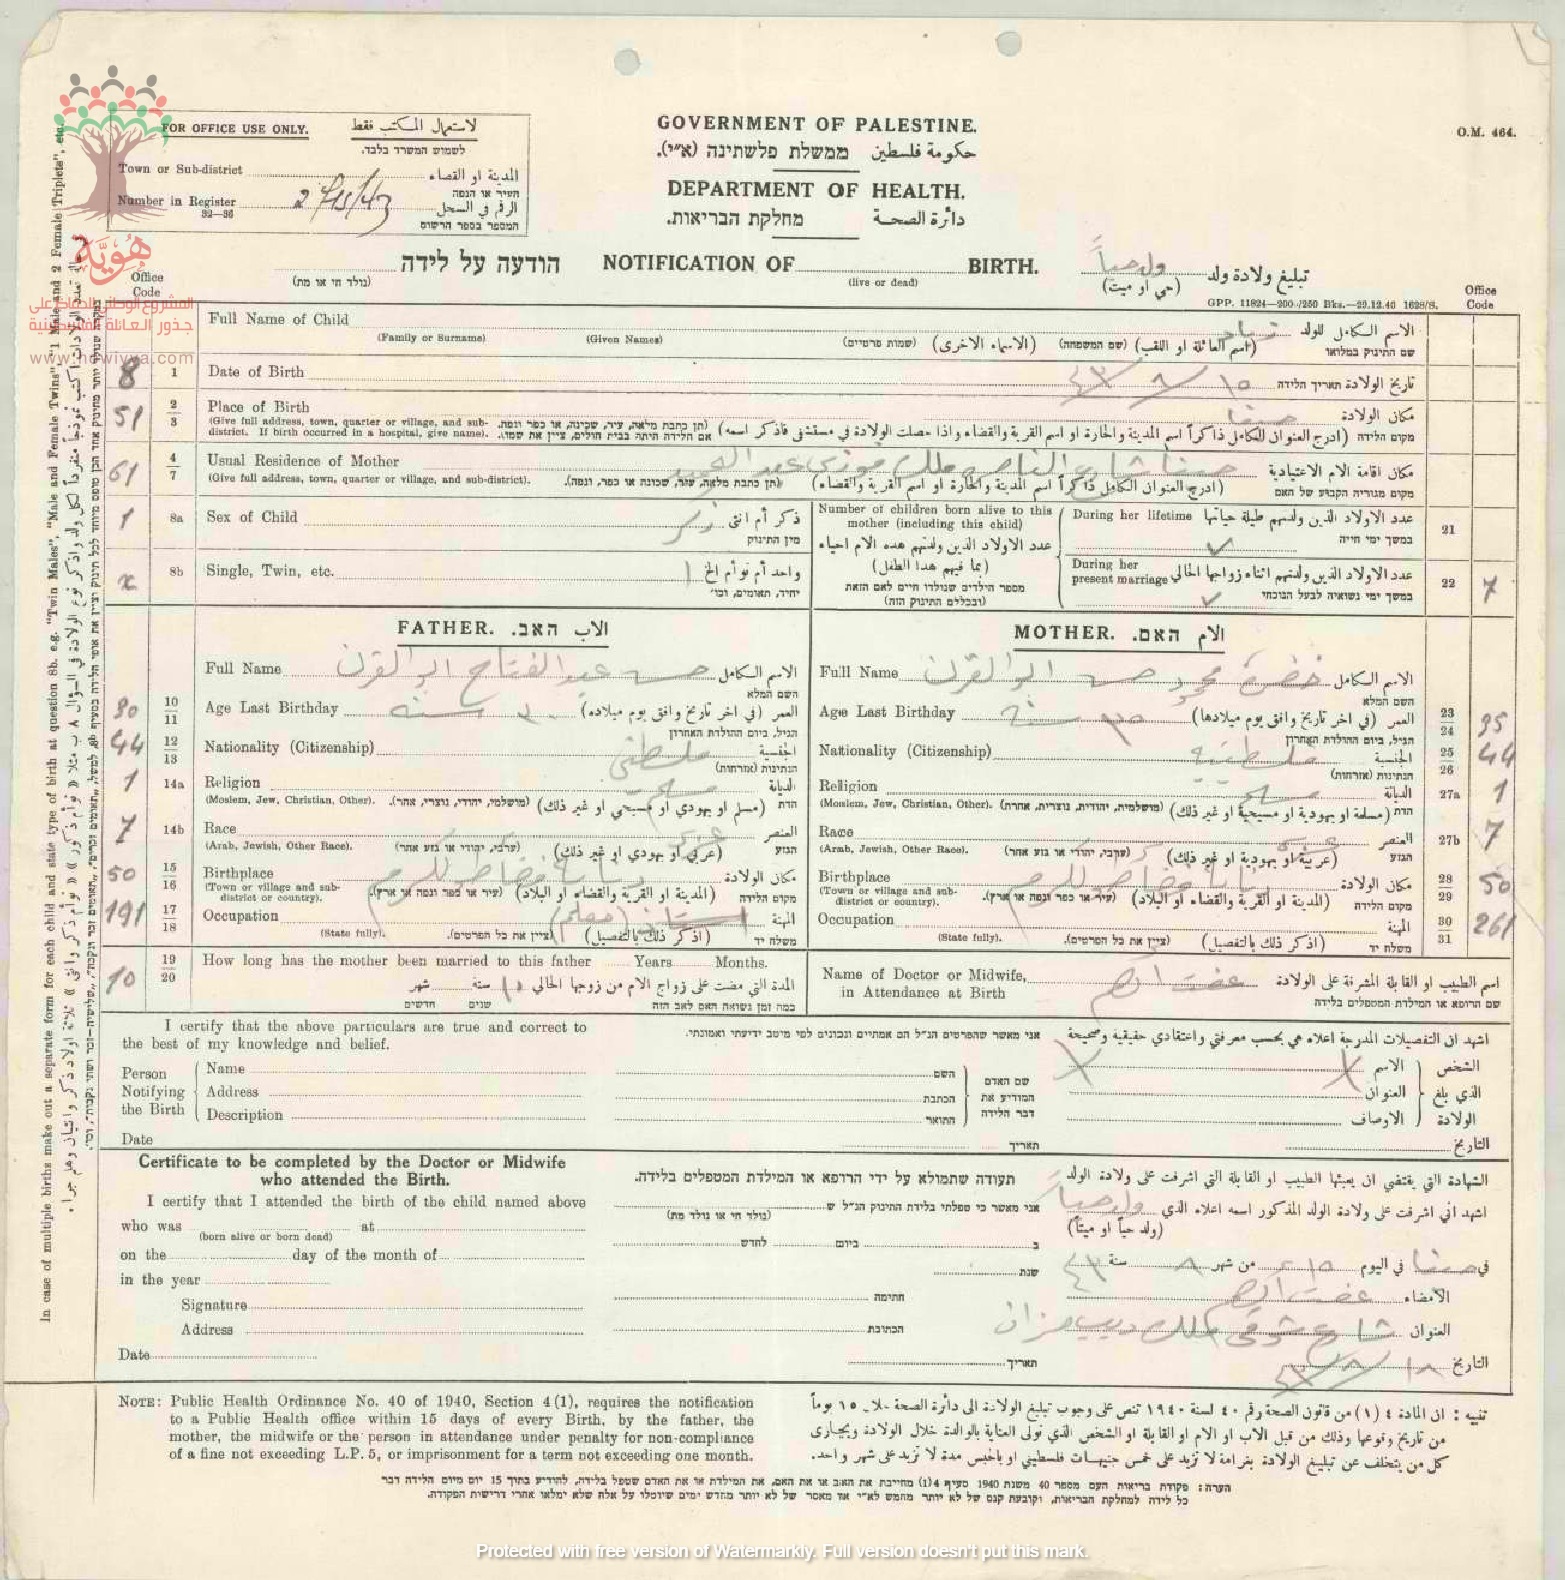 O.M. 464.
FOR OFFICE USE ONLY. لاستعمال المكتب فقط
לשמוש המשרד בלבד.
Town or Sub-district المدينة او القضاء
העיר או הנפה
Number in Register الرقم في السجل
32—36
המספר בספר הרשום
GOVERNMENT OF PALESTINE.
حكومة فلسطين ממשלת פלשתינה (א״י).
DEPARTMENT OF HEALTH.
دائرة الصحة מחלקת הבריאות.
הודעה על לידה NOTIFICATION OF BIRTH. تبليغ ولادة ولد ولد حياً
(נולד חי או מת) (live or dead) (حي او ميت)
GPP. 11824—200/250 Bks.—29.12.40 1628/S.
Office Code
Office Code
هويّة
المشروع الوطني للحفاظ على
جذور العائلة الفلسطينية
www.howiyya.com
Full Name of Child الاسم الكامل للولد
(Family or Surname) (Given Names) (שמות פרטיים) (الاسماء الاخرى) (שם המשפחה) (اسم العائلة او اللقب) שם התינוק במלואו
8 1 Date of Birth ١٥ / ٨ / ٤٣ تاريخ الولادة תאריך הלידה
51 2/3 Place of Birth حيفا مكان الولادة
(Give full address, town, quarter or village, and sub-district. If birth occurred in a hospital, give name). (תן כתבת מלאה, עיר, שכונה, או כפר ונפה. אם הלידה היתה בבית חולים, ציין את שמו). (ادرج العنوان الكامل ذاكراً اسم المدينة والحارة او اسم القرية والقضاء واذا حصلت الولادة في مستشفى فاذكر اسمه) מקום הלידה
61 4/7 Usual Residence of Mother حيفا شارع الناصره ملك فوزي عبد الحميد مكان اقامة الام الاعتيادية
(Give full address, town, quarter or village, and sub-district). (תן כתבת מלאה, עיר, שכונה או כפר, ונפה). (ادرج العنوان الكامل ذاكراً اسم المدينة والحارة او اسم القرية والقضاء) מקום מגוריה הקבוע של האם
1 8a Sex of Child ذكر ذكر أم انثى
מין התינוק
x 8b Single, Twin, etc. ١ واحد أم توأم الخ
יחיד, תאומים, וכו׳
Number of children born alive to this mother (including this child)
عدد الاولاد الذين ولدتهم هذه الام احياء
(بما فيهم هذا الطفل)
מספר הילדים שנולדו חיים לאם הזאת
(ובכללם התינוק הזה)
During her lifetime عدد الاولاد الذين ولدتهم طيلة حياتها 21
במשך ימי חייה
٧
During her present marriage عدد الاولاد الذين ولدتهم اثناء زواجها الحالي 22 7
במשך ימי נשואיה לבעל הנוכחי
٧
FATHER. الاب האב.
Full Name حسن عبد الفتاح ابو القرن الاسم الكامل
השם המלא
30 10/11 Age Last Birthday ٣٠ سنه العمر (في اخر تاريخ وافق يوم ميلاده)
הגיל, ביום ההולדת האחרון
44 12/13 Nationality (Citizenship) فلسطيني الجنسية
הנתינות (אזרחות)
1 14a Religion مسلم الديانة
(Moslem, Jew, Christian, Other). (מושלמי, יהודי, נוצרי, אחר). (مسلم او يهودي او مسيحي او غير ذلك) הדת
7 14b Race عربي العنصر
(Arab, Jewish, Other Race). (ערבי, יהודי או גזע אחר) (عربي او يهودي او غير ذلك) הגזע
50 15/16 Birthplace مكان الولادة
(Town or village and sub-district or country). (עיר או כפר ונפה או ארץ). (المدينة او القرية والقضاء او البلاد) מקום הלידה
191 17/18 Occupation استاذ (معلم) المهنة
(State fully). (ציין את כל הפרטים). (اذكر ذلك بالتفصيل) משלח יד
MOTHER. الام האם.
Full Name خضره محمود حسن ابو القرن الاسم الكامل
השם המלא
Age Last Birthday ٣٥ سنه العمر (في اخر تاريخ وافق يوم ميلادها) 23/24 35
הגיל, ביום ההולדת האחרון
Nationality (Citizenship) فلسطينيه الجنسية 25/26 44
הנתינות (אזרחות)
Religion الديانة 27a 1
(Moslem, Jew, Christian, Other). (מושלמית, יהודית, נוצרית, אחרת). (مسلمة او يهودية او مسيحية او غير ذلك) הדת
Race العنصر 27b 7
(Arab, Jewish, Other Race). (ערבי, יהודי או גזע אחר) (عربية او يهودية او غير ذلك) הגזע
Birthplace مكان الولادة 28/29 50
(Town or village and sub-district or country). (עיר או כפר ונפה או ארץ). (المدينة او القرية والقضاء او البلاد) מקום הלידה
Occupation المهنة 30/31 261
(State fully). (ציין את כל הפרטים). (اذكر ذلك بالتفصيل) משלח יד
10 19/20 How long has the mother been married to this father Years Months.
المدة التي مضت على زواج الام من زوجها الحالي ١٠ سنة شهر
כמה זמן נשואה האם לאב הזה שנים חדשים
Name of Doctor or Midwife, in Attendance at Birth اسم الطبيب او القابلة المشرفة على الولادة
שם הרופא או המילדת המטפלים בלידה
I certify that the above particulars are true and correct to the best of my knowledge and belief.
אני מאשר שהפרטים הנ״ל הם אמתיים ונכונים לפי מיטב ידיעתי ואמונתי.
اشهد ان التفصيلات المدرجة اعلاه هي بحسب معرفتي واعتقادي حقيقيه وصحيحة
Person Notifying the Birth
Name השם الاسم
Address הכתבת العنوان
Description התואר الاوصاف
שם האדם המודיע את דבר הלידה
الشخص الذي بلغ الولادة
Date תאריך التاريخ
Certificate to be completed by the Doctor or Midwife who attended the Birth.
תעודה שתמולא על ידי הרופא או המילדת המטפלים בלידה.
الشهادة التي يقتضي ان يعبئها الطبيب او القابلة التي اشرفت على ولادة الولد
I certify that I attended the birth of the child named above
אני מאשר כי טפלתי בלידת התינוק הנ״ל ש
(נולד חי או נולד מת)
اشهد اني اشرفت على ولادة الولد المذكور اسمه اعلاه الذي ولد حياً
(ولد حياً او ميتاً)
who was at
(born alive or born dead)
on the day of the month of
ב ביום לחדש
في حيفا في اليوم ١٥ من شهر ٨ سنة ٤٣
in the year שנת
Signature חתימה الامضاء
Address הכתובת العنوان
Date תאריך التاريخ ١٨ / ٨ / ٤٣
NOTE: Public Health Ordinance No. 40 of 1940, Section 4(1), requires the notification
to a Public Health office within 15 days of every Birth, by the father, the
mother, the midwife or the person in attendance under penalty for non-compliance
of a fine not exceeding L.P. 5, or imprisonment for a term not exceeding one month.
تنبيه : ان المادة ٤ (١) من قانون الصحة رقم ٤٠ لسنة ١٩٤٠ تنص على وجوب تبليغ الولادة الى دائرة الصحة خلال ١٥ يوماً
من تاريخ وقوعها وذلك من قبل الاب او الام او القابلة او الشخص الذي تولى العناية بالوالدة خلال الولادة ويجازى
كل من يتخلف عن تبليغ الولادة بغرامة لا تزيد على خمس جنيهات فلسطيني او بالحبس مدة لا تزيد على شهر واحد.
הערה: פקודת בריאות העם מספר 40 משנת 1940 סעיף 4(1) מחייבת את האב או את האם, את המילדת או את האדם שטפל בלידה, להודיע בתוך 15 יום מיום הלידה דבר
כל לידה למחלקת הבריאות, וקובעת קנס של לא יותר מחמש לא״י או מאסר של לא יותר מחדש ימים שיוטלו על אלה שלא ימלאו אחרי דרישות הפקודה.
In case of multiple births make out a separate form for each child and state type of birth at question 8b. e.g. "Twin Males", "Male and Female Twins", "1 Male and 2 Female Triplets", etc.
Protected with free version of Watermarkly. Full version doesn't put this mark.